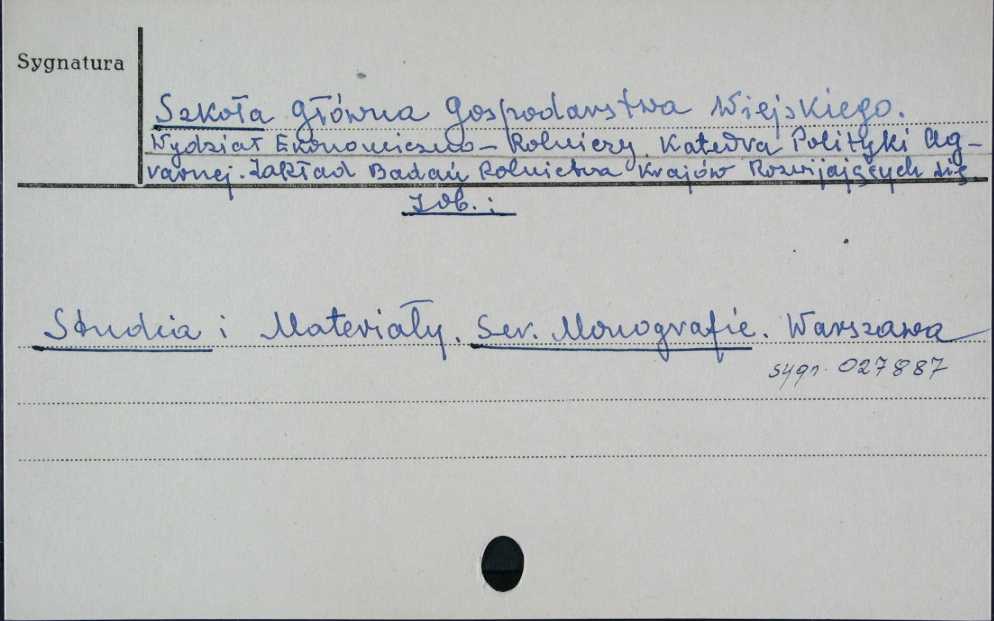 Sygnatura
Szkoła Główna Gospodarstwa Wiejskiego.
Wydział Ekonomiczno-Rolniczy. Katedra Polityki Ag-
rarnej. Zakład Badań Rolnictwa Krajów Rozwijających się
Zob.:
Studia i Materiały. Ser. Monografie. Warszawa
sygn. 027887